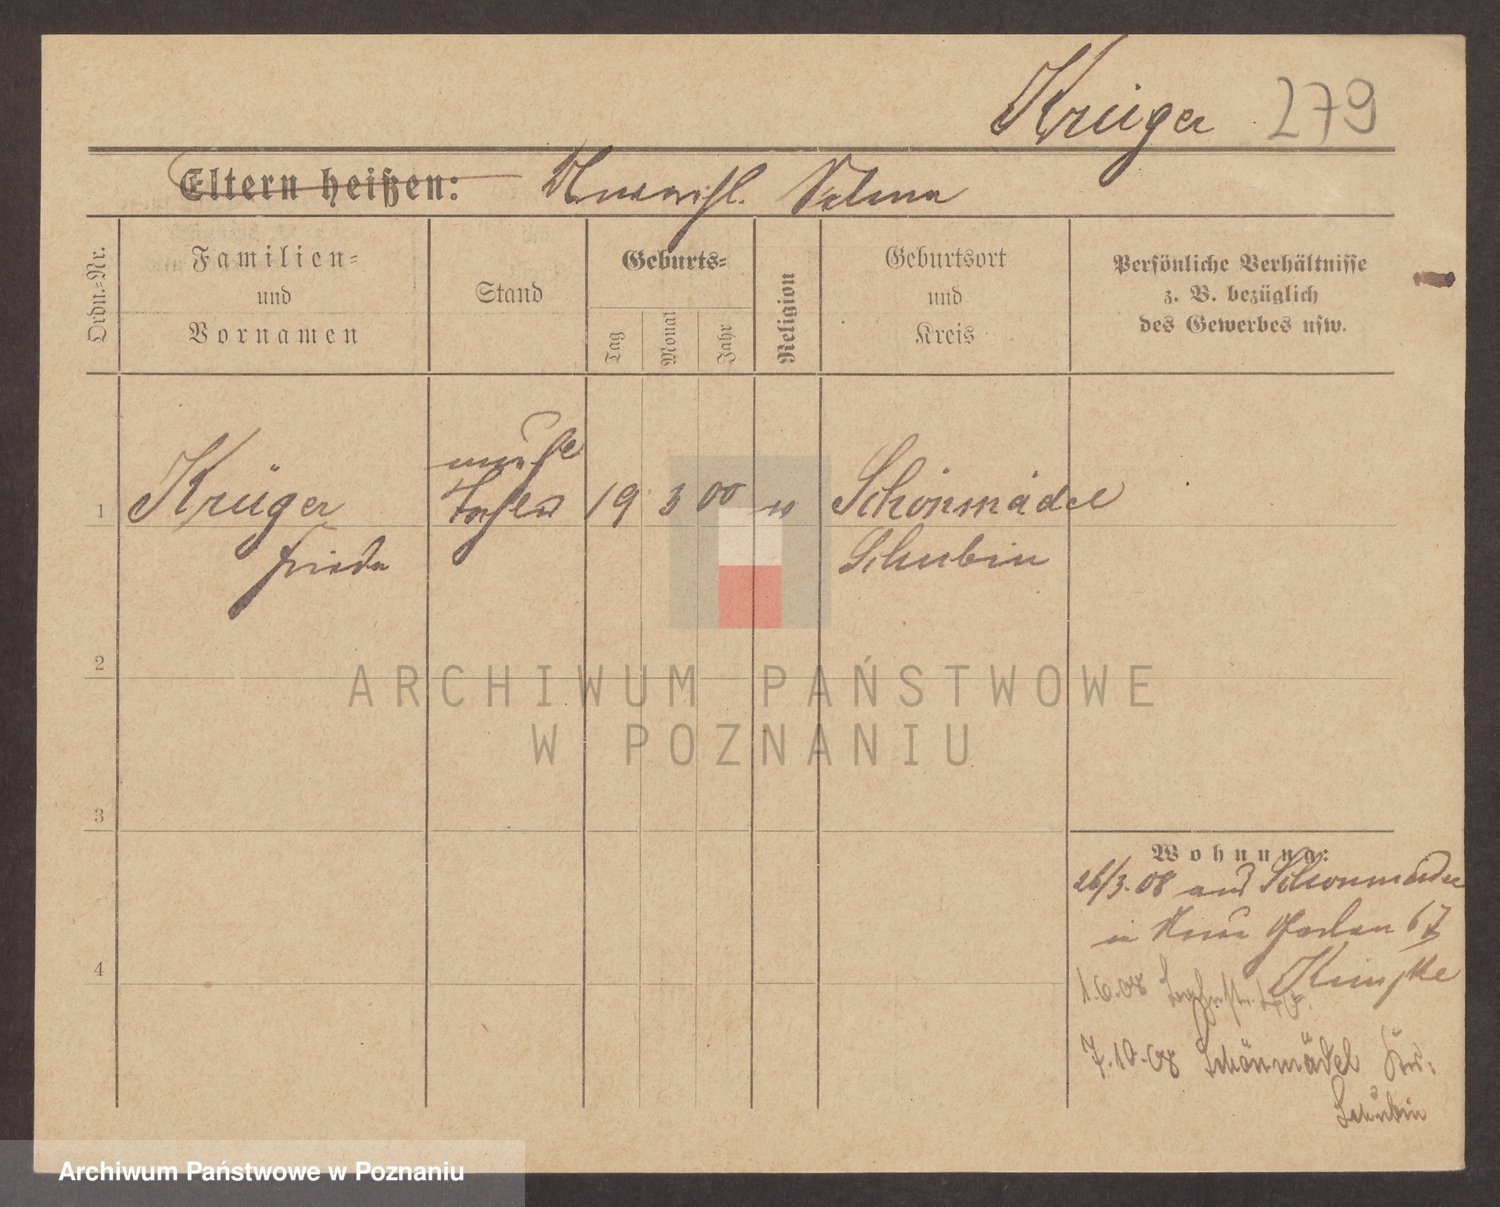 Krüger 279
Eltern heißen: Unverehl. Selma
Ordn.-Nr.
Familien-
und
Vornamen
Stand
Geburts-
Tag
Monat
Jahr
Religion
Geburtsort
und
Kreis
Persönliche Verhältnisse
z. B. bezüglich
des Gewerbes usw.
unehe
1 Krüger Tochter 19 3 00 Schönmädel
Frieda Schubin
2
3
4
Wohnung:
26/3. 08 aus Schönmädel
in Neue Garten 67
1.6.08
7.10.08 Schönmädel Krs.
Schubin
ARCHIWUM PAŃSTWOWE
W POZNANIU
Archiwum Państwowe w Poznaniu